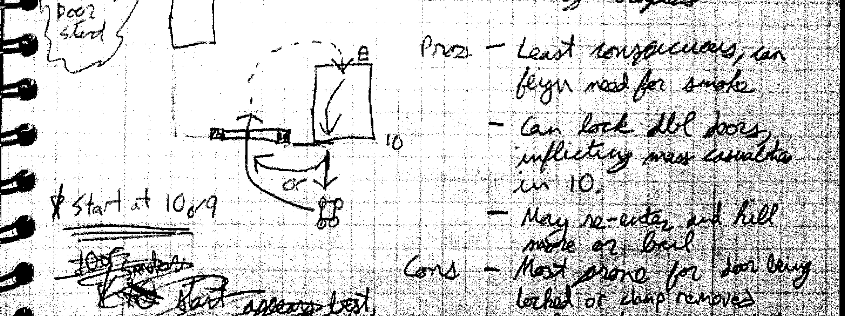 Door
start
Pros - Least conspicuous, can
feign need for smoke
- Can lock dbl doors,
inflicting mass casualties
in 10.
- May re-enter and kill
more or bail
Cons - Most prone for door being
locked or clamp removed
8
10
or
Start at 10 or 9
start appears best